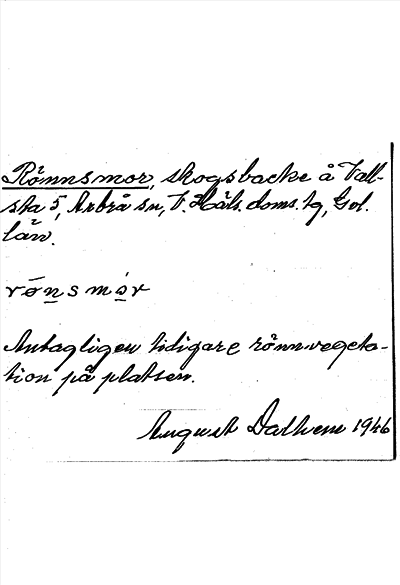 Rönnsmor, skogsbacke å Vall-
sta 5, Arbrå sn, V. Häls. doms. tg, Gvl.
län.
rönsmór
Antagligen tidigare rönnvegeta-
tion på platsen.
August Dalhem 1946